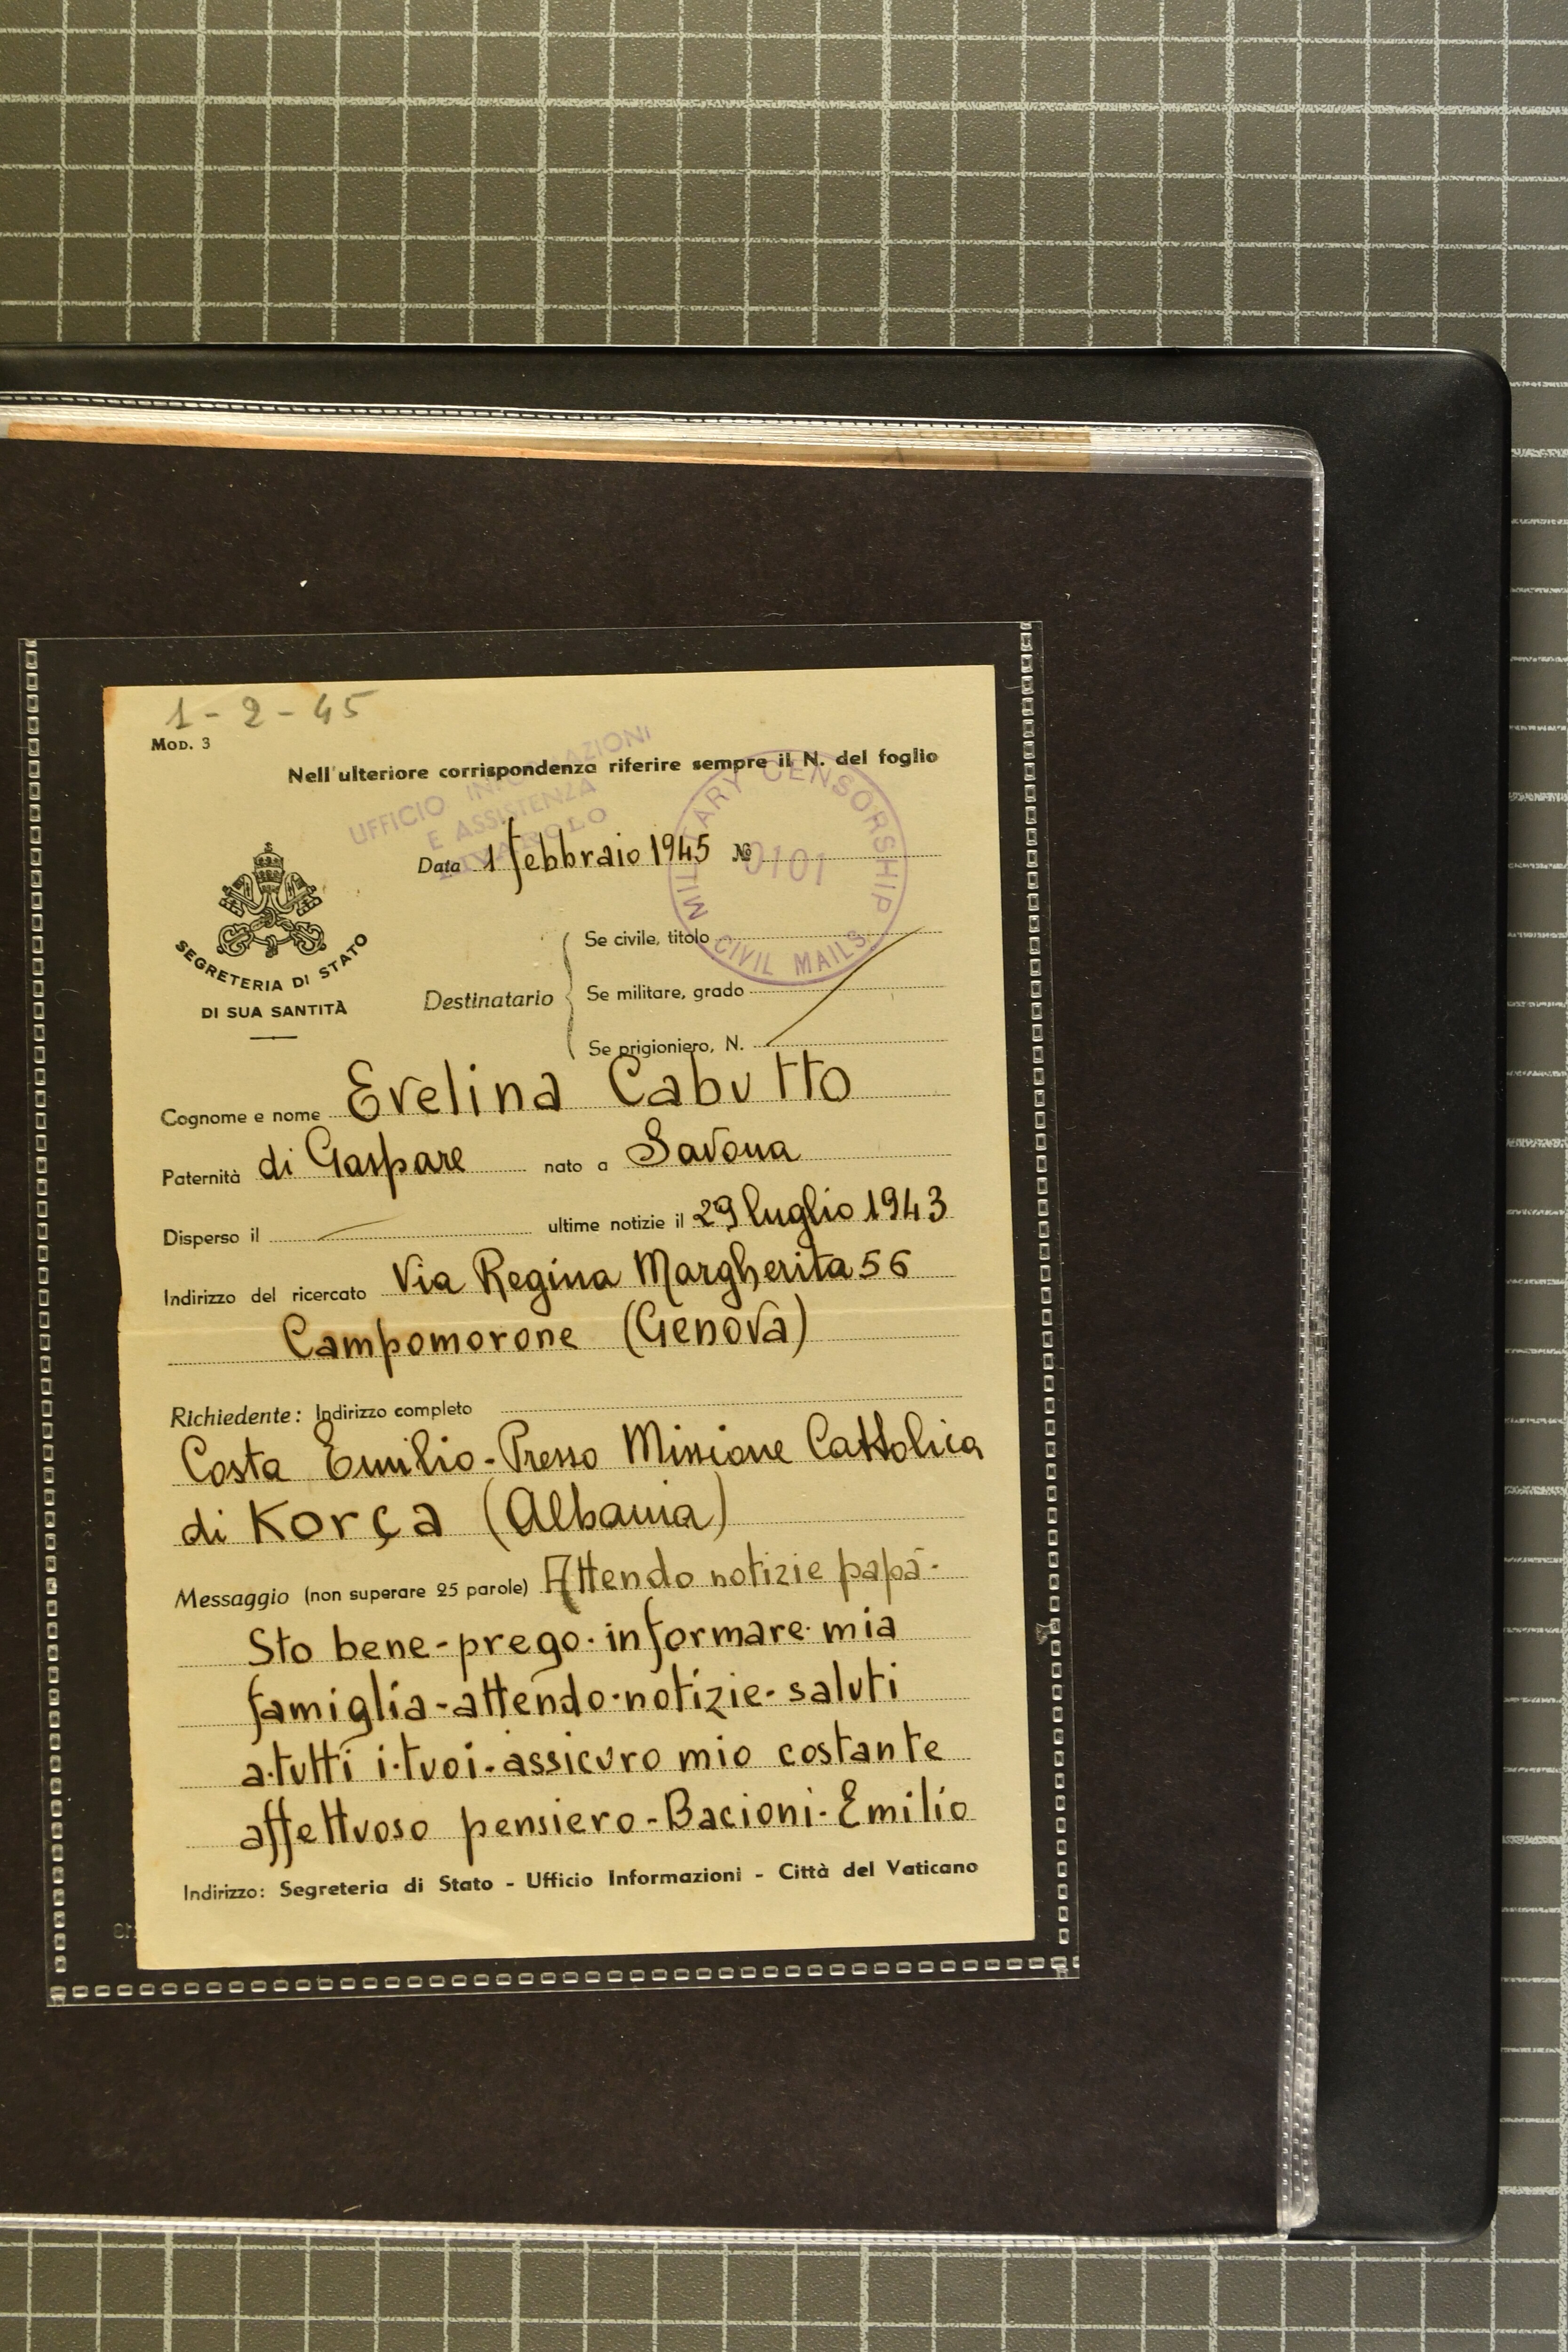 1-2-45
Mod. 3
Nell'ulteriore corrispondenza riferire sempre il N. del foglio
UFFICIO INFORMAZIONI
E ASSISTENZA
MILITARY CENSORSHIP
CIVIL MAILS.
0101
Data 1 febbraio 1945 №
SEGRETERIA DI STATO
DI SUA SANTITÀ
Destinatario
Se civile, titolo
Se militare, grado
Se prigioniero, N.
Cognome e nome Evelina Cabutto
Paternità di Gaspare nato a Savona
Disperso il ultime notizie il 29 luglio 1943
Indirizzo del ricercato Via Regina Margherita 56
Campomorone (Genova)
Richiedente: Indirizzo completo
Costa Emilio - Presso Missione Cattolica
di Korça (Albania)
Messaggio (non superare 25 parole) Attendo notizie papà -
Sto bene - prego · informare · mia
famiglia - attendo · notizie - saluti
a · tutti i · tuoi - assicuro mio costante
affettuoso pensiero - Bacioni - Emilio
Indirizzo: Segreteria di Stato - Ufficio Informazioni - Città del Vaticano